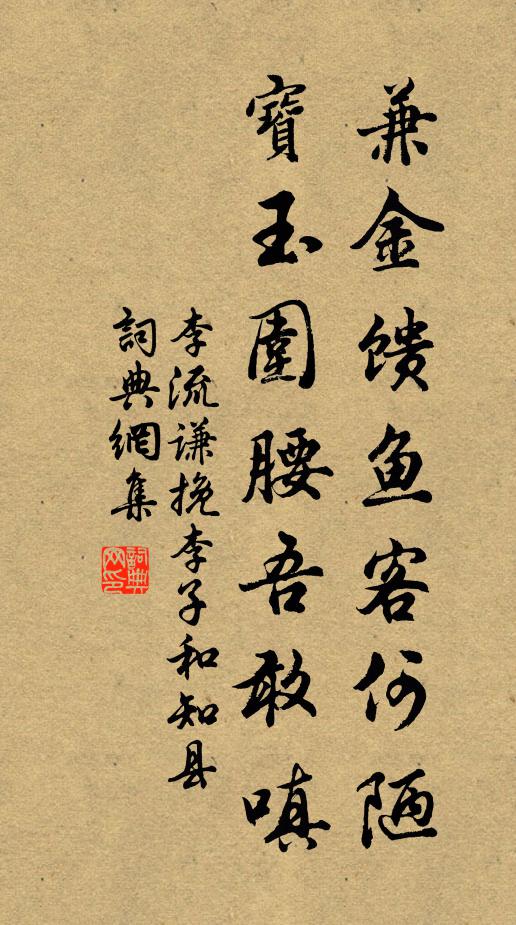 兼金馈鱼客何陋
寶玉圍腰吾敢嗔
李流谦挽李子和知县
詞典網集
詞典网印